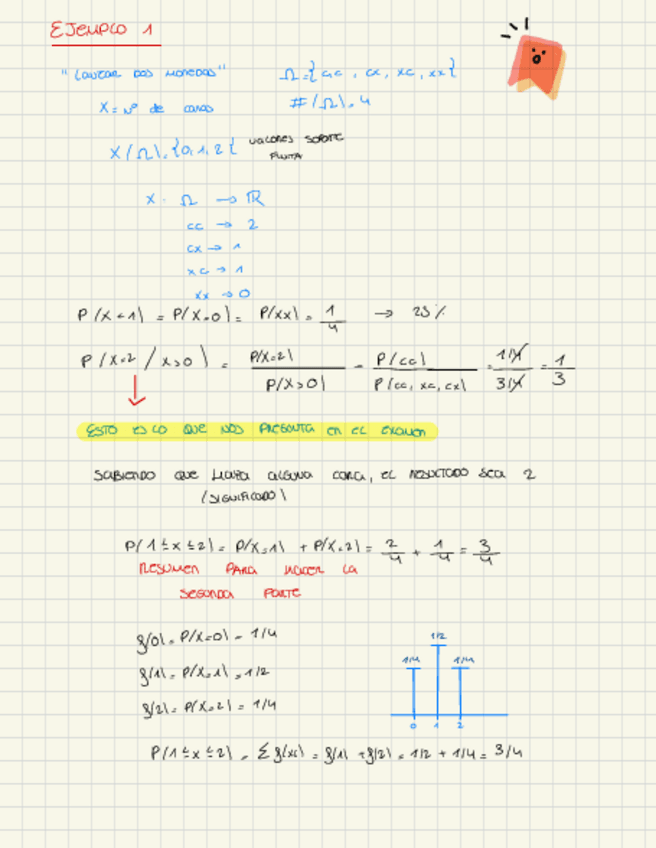 EJEMPLO 1
"LANZAR DOS MONEDAS" Ω={cc, cx, xc, xx}
X = Nº de caras #(Ω)=4
X(Ω)={0,1,2} VALORES SOPORTE
FINITA
X: Ω → ℝ
cc → 2
cx → 1
xc → 1
xx → 0
P(X<1) = P(X=0) = P(xx) = 1/4 → 25%
P(X=2 / X>0) = P(X=2)/P(X>0) = P(cc)/P(cc, xc, cx) = 1/4/3/4 = 1/3
ESTO ES LO QUE NOS PREGUNTA EN EL EXAMEN
SABIENDO QUE HAYA ALGUNA CARA, EL RESULTADO SEA 2
(SIGNIFICADO)
P(1≤x≤2) = P(X=1) + P(X=2) = 2/4 + 1/4 = 3/4
RESUMEN PARA HACER LA
SEGUNDA PARTE
f(0) = P(X=0) = 1/4
f(1) = P(X=1) = 1/2
f(2) = P(X=2) = 1/4
1/2
1/4 1/4
0 1 2
P(1≤x≤2) = Σf(xi) = f(1) + f(2) = 1/2 + 1/4 = 3/4